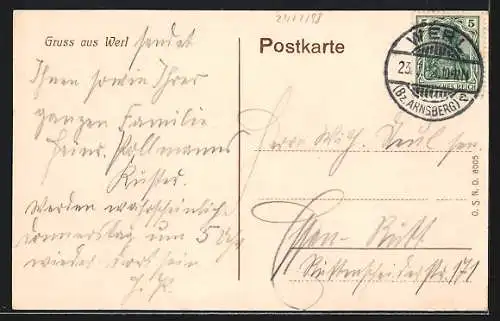 24/12/98
Gruss aus Werl sendet
Ihnen sowie Ihrer
ganzen Familie
Heinr. Pollmanns
Küster.
Werden wahrscheinlich
Donnerstag um 5 Uhr
wieder dort sein
Postkarte
5 5
WERL
23.
(Bz. ARNSBERG)
REICH
Herrn Wilh. sen.
Essen-Rütt
Rüttenscheiderstr. 171
O. S. N. D. 8005